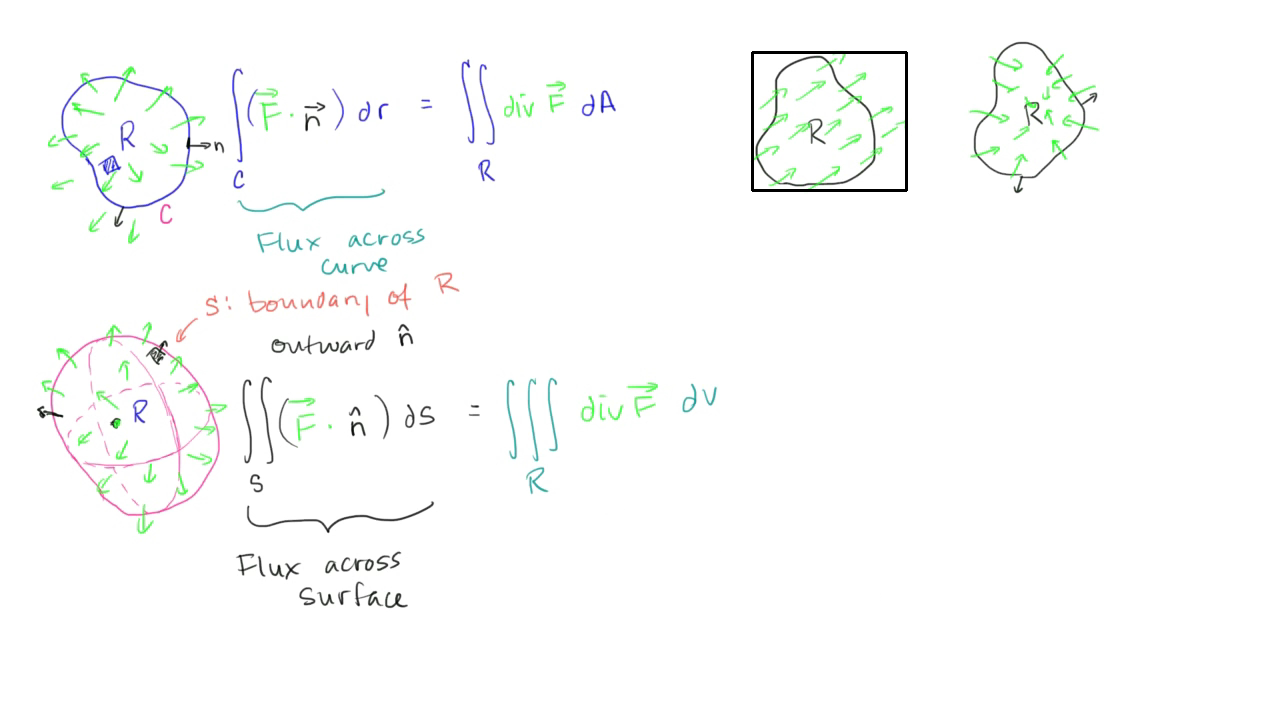 R
n
C
∫ (F⃗ · n⃗) dr = ∬ div F⃗ dA
C
R
Flux across
curve
S: boundary of R
outward n̂
R
∬ (F⃗ · n̂) dS = ∭ div F⃗ dv
S
R
Flux across
surface
R
R